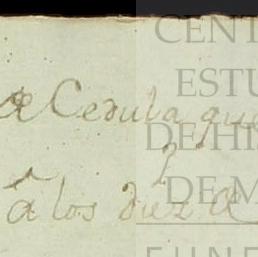 CENT
Cedula que
ESTU
DE HIS
DE M
â los diez
FUNE